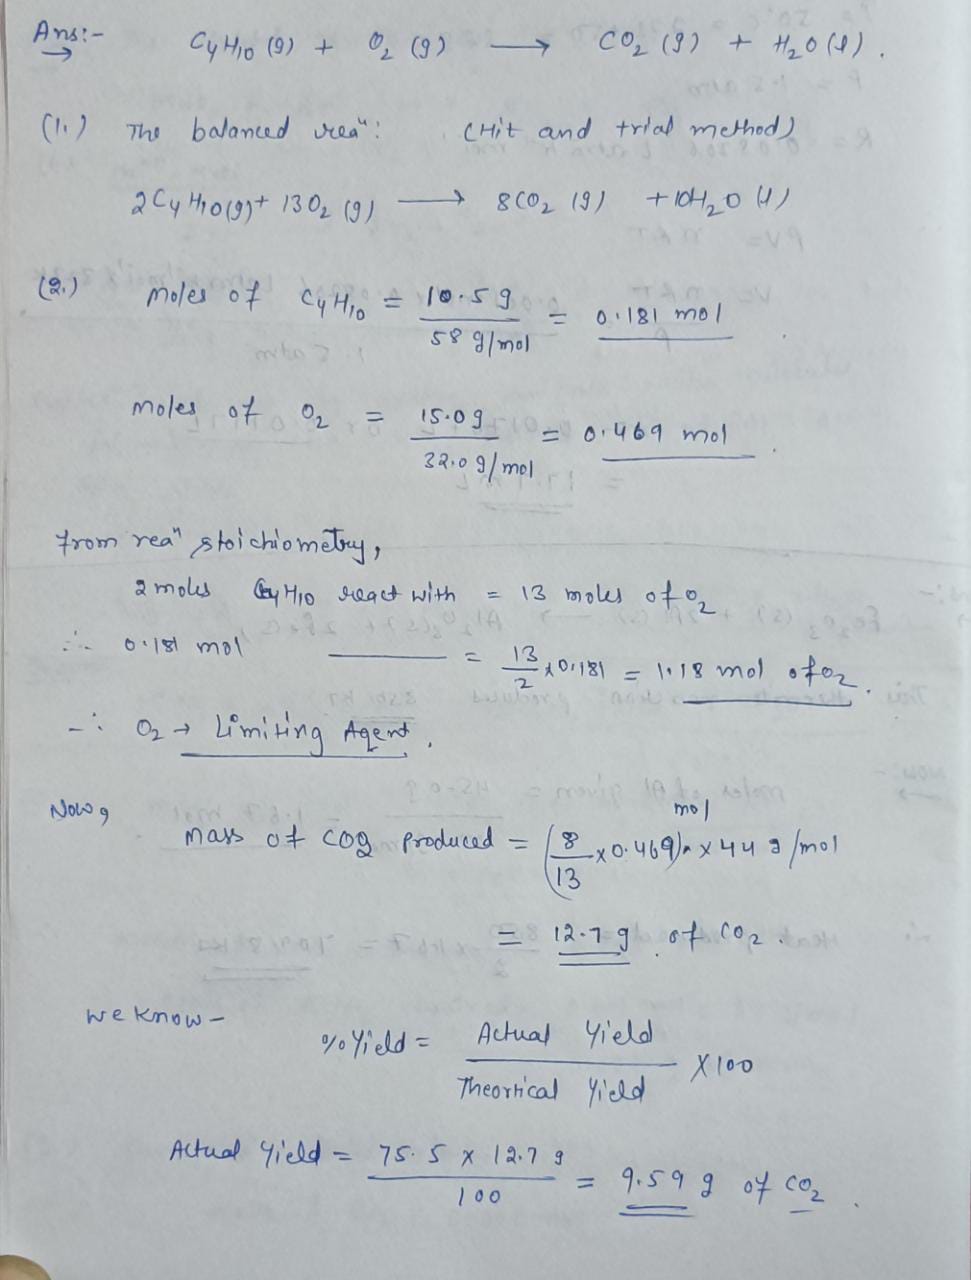 Ans:-
→ C4H10 (g) + O2 (g) ⟶ CO2 (g) + H2O (l).
(1.) The balanced reaⁿ: (Hit and trial method)
2C4H10(g) + 13O2 (g) ⟶ 8CO2 (g) + 10H2O (l)
(2.) Moles of C4H10 = 10.5 g / 58 g/mol = 0.181 mol
Moles of O2 = 15.0 g / 32.0 g/mol = 0.469 mol.
from reaⁿ stoichiometry,
2 moles C4H10 react with = 13 moles of O2
∴ 0.181 mol ——— = 13/2 x 0.181 = 1.18 mol of O2.
∴ O2 → Limiting Agent.
Now,
Mass of CO2 produced = (8/13 x 0.469) mol x 44 g/mol
= 12.7 g of CO2.
we know -
% Yield = Actual Yield / Theortical Yield X 100
Actual Yield = 75.5 x 12.7 g / 100 = 9.59 g of CO2.